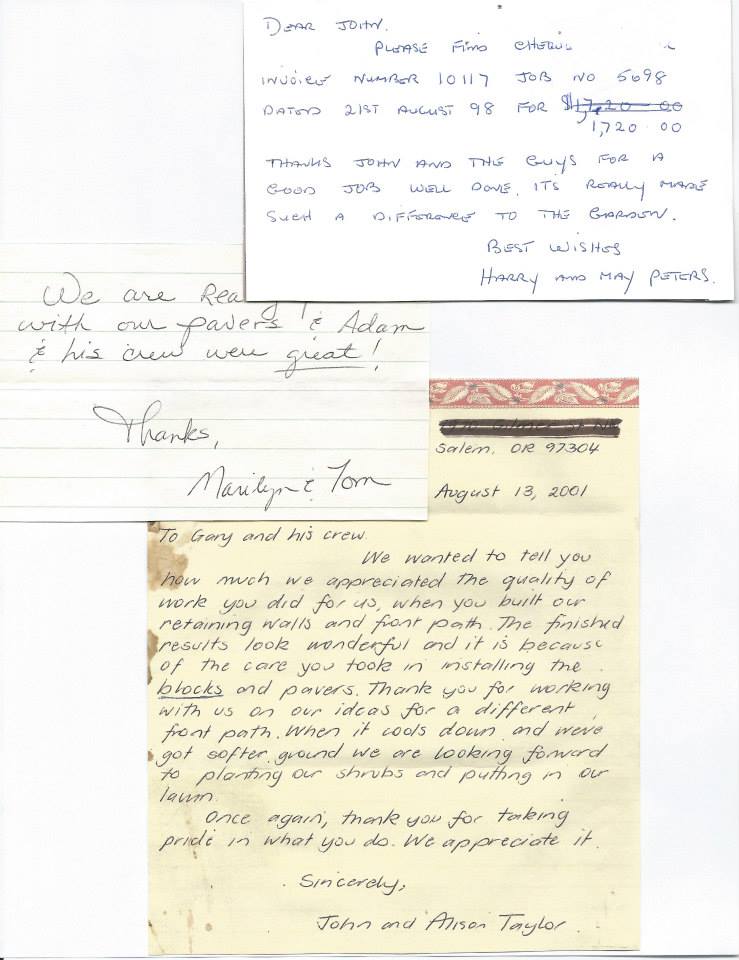 DEAR JOHN.
PLEASE FIND
INVOICE NUMBER 10117 JOB NO 5698
DATED 21ST AUGUST 98 FOR $17,20 00
1,720 00
THANKS JOHN AND THE GUYS FOR A
GOOD JOB WELL DONE, ITS REALLY MADE
SUCH A DIFFERENCE TO THE GARDEN.
BEST WISHES
HARRY AND MAY PETERS.
We are
with our pavers & Adam
& his crew were great!
Thanks,
Marilyn & Tom
Salem, OR 97304
August 13, 2001
To Gary and his crew.
We wanted to tell you
how much we appreciated the quality of
work you did for us, when you built our
retaining walls and front path. The finished
results look wonderful and it is because
of the care you took in installing the
blocks and pavers. Thank you for working
with us on our ideas for a different
front path. When it cools down and we've
got softer ground we are looking forward
to planting our shrubs and putting in our
lawn.
Once again, thank you for taking
pride in what you do. We appreciate it.
Sincerely,
John and Alison Taylor